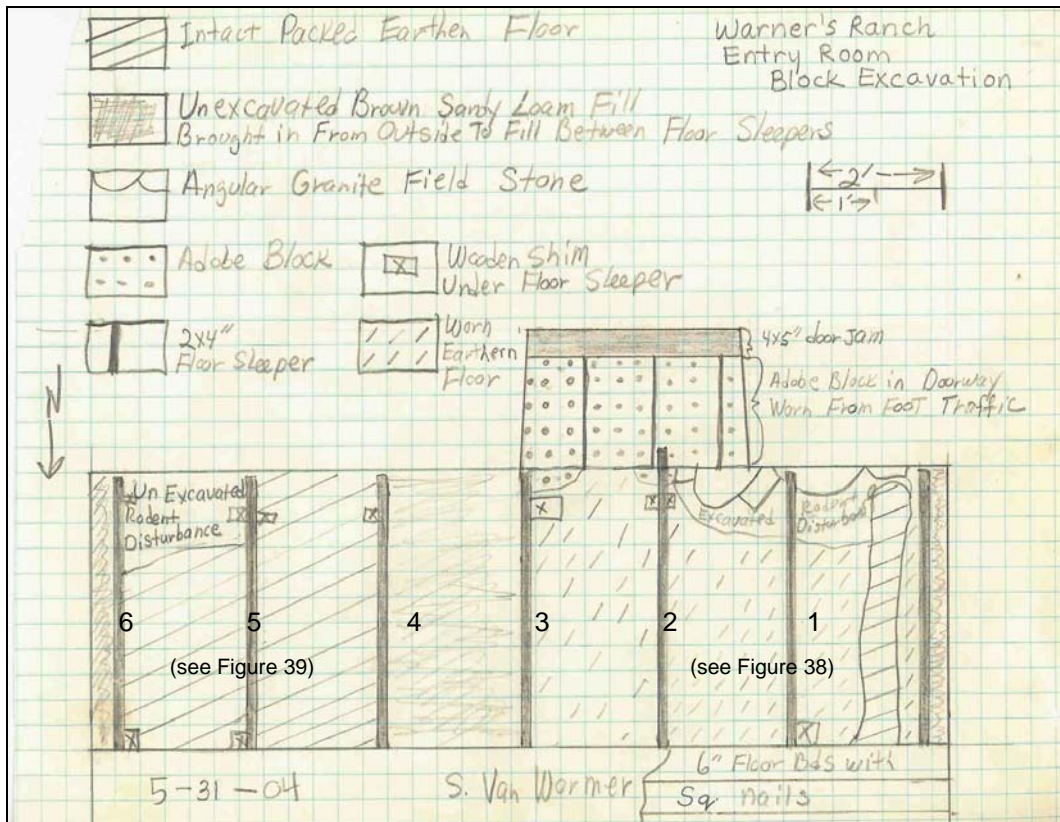 Intact Packed Earthen Floor
Warner's Ranch
Entry Room
Block Excavation
Unexcavated Brown Sandy Loam Fill
Brought in From Outside To Fill Between Floor Sleepers
Angular Granite Field Stone
2'
1'
Adobe Block
X
Wooden Shim
Under Floor Sleeper
2x4"
Floor Sleeper
Worn
Earthern
Floor
4x5" door Jam
Adobe Block in Doorway
Worn From Foot Traffic
N
Un Excavated
Rodent
Disturbance
Excavated
Rodent
Disturbance
6 5 4 3 2 1
(see Figure 39) (see Figure 38)
5-31-04
S. Van Wormer
6" Floor Bds with
Sq nails